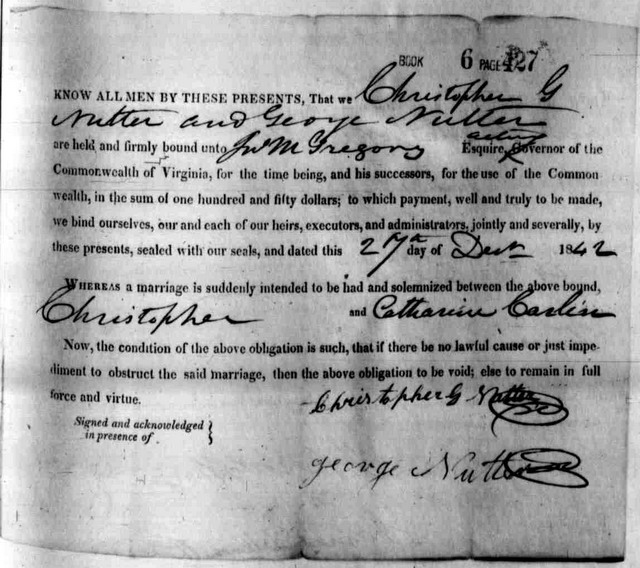 BOOK 6 PAGE 427
KNOW ALL MEN BY THESE PRESENTS, That we Christopher G
Nutter and George Nutter
are held and firmly bound unto Jno M Gregory Esquire, acting Governor of the
Commonwealth of Virginia, for the time being, and his successors, for the use of the Common
wealth, in the sum of one hundred and fifty dollars; to which payment, well and truly to be made,
we bind ourselves, our and each of our heirs, executors, and administrators, jointly and severally, by
these presents, sealed with our seals, and dated this 27th day of Decr 1842
WHEREAS a marriage is suddenly intended to be had and solemnized between the above bound,
Christopher and Catharine Carlin
Now, the condition of the above obligation is such, that if there be no lawful cause or just impe-
diment to obstruct the said marriage, then the above obligation to be void; else to remain in full
force and virtue.
Christopher G Nutter
Signed and acknowledged
in presence of
George Nutter